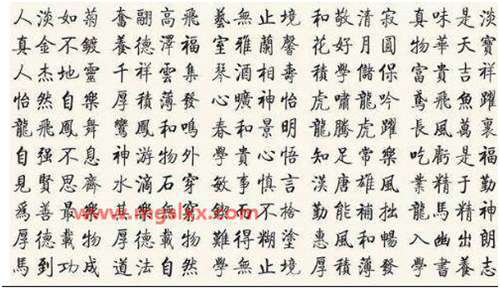 人淡如菊 奮翮高飛 藝無止境 和敬清寂 真味是淡
真金不鍍 養德澤福 室雅蘭馨 花好月圓 物華天寶
人杰地靈 千祥雲集 琴酒相壽 積學儲保 富貴吉祥
怡然自樂 厚積薄發 心曠神怡 虎嘯龍吟 鳶飛魚躍
龍飛鳳舞 鸞鳳和鳴 春和景明 龍騰虎躍 長風萬裏
自强不息 神游物外 學貴心悟 知足常樂 吃虧是福
見賢思齊 水滴石穿 敏事慎言 漢唐雄風 業精于勤
為善最樂 其樂無窮 而不 勤能補拙 龍馬精神
厚德載物 厚德載物 難得糊塗 惠風和暢 入幽出朗
馬到功成 道法自然 學無止境 厚積薄發 學書養志
www.mgalxx.com